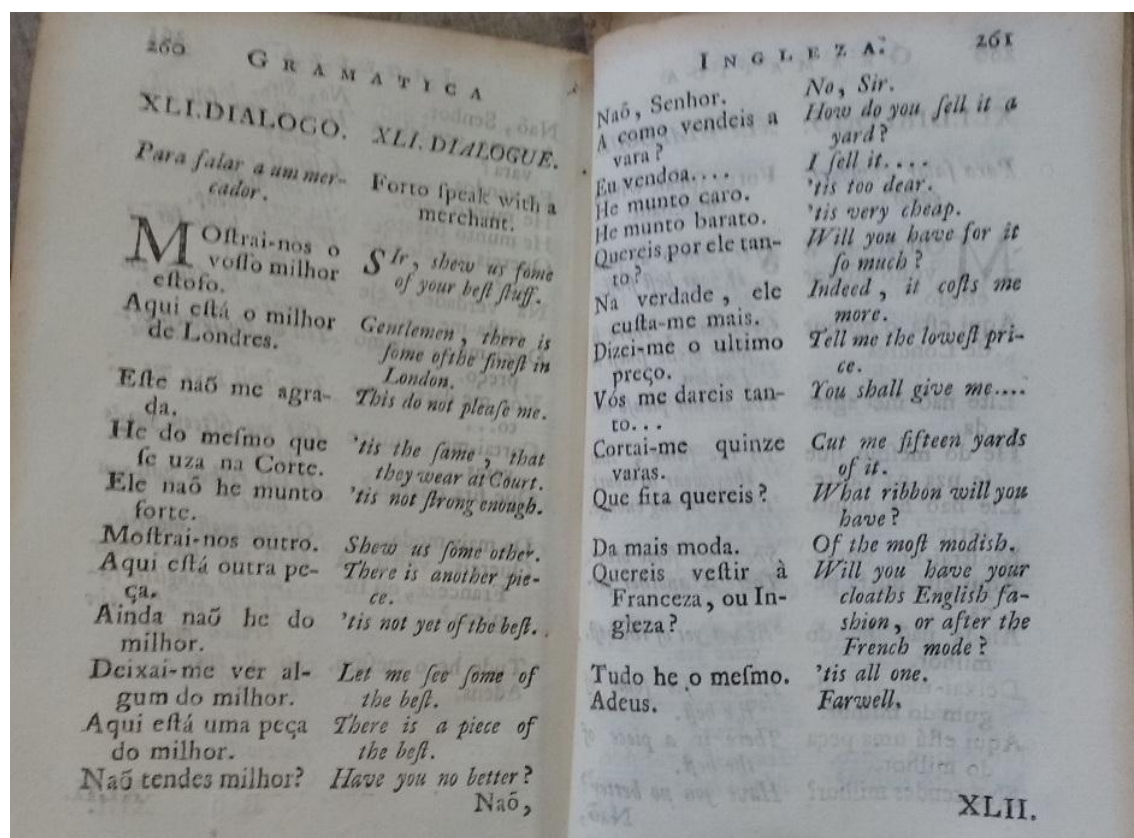 260
GRAMATICA
XLI.DIALOGO.
Para falar a um mer-
cador.
MOſtrai-nos o
voſſo milhor
eſtofo.
Aqui eſtá o milhor
de Londres.
Eſte naõ me agra-
da.
He do meſmo que
ſe uza na Corte.
Ele naõ he munto
forte.
Moſtrai-nos outro.
Aqui eſtá outra pe-
ça.
Ainda naõ he do
milhor.
Deixai-me ver al-
gum do milhor.
Aqui eſtá uma peça
do milhor.
Naõ tendes milhor?
XLI. DIALOGUE.
Forto ſpeak with a
merchant.
SIr, shew us ſome
of your beſt ſtuff.
Gentlemen, there is
ſome ofthe fineſt in
London.
This do not pleaſe me.
'tis the ſame, that
they wear at Court.
'tis not ſtrong enough.
Shew us ſome other.
There is another pie-
ce.
'tis not yet of the beſt.
Let me ſee ſome of
the beſt.
There is a piece of
the beſt.
Have you no better?
Naõ,
INGLEZA.
261
Naõ, Senhor.
A como vendeis a
vara?
Eu vendoa....
He munto caro.
He munto barato.
Quereis por ele tan-
to?
Na verdade, ele
cuſta-me mais.
Dizei-me o ultimo
preço.
Vós me dareis tan-
to...
Cortai-me quinze
varas.
Que fita quereis?
Da mais moda.
Quereis veſtir à
Franceza, ou In-
gleza?
Tudo he o meſmo.
Adeus.
No, Sir.
How do you ſell it a
yard?
I ſell it....
'tis too dear.
'tis very cheap.
Will you have for it
ſo much?
Indeed, it coſts me
more.
Tell me the loweſt pri-
ce.
You shall give me....
Cut me fifteen yards
of it.
What ribbon will you
have?
Of the moſt modish.
Will you have your
cloaths English fa-
shion, or after the
French mode?
'tis all one.
Farwell.
XLII.